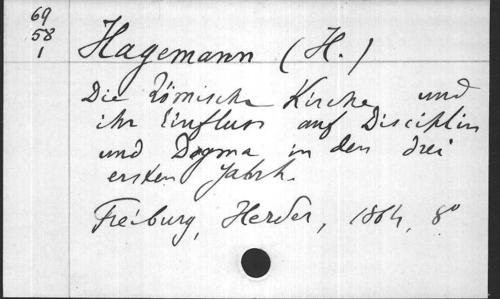 69
58
1
Hagemann (H.)
Die Römische Kirche und
ihr Einfluss auf Disciplin
und Dogma in den drei
ersten Jahrh.
Freiburg, Herder, 1864, 8°